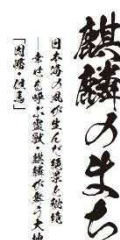 麒麟のまち
日本海の風が生んだ絶景と秘境
―幸せを呼ぶ霊獣・麒麟が舞う大地
「因幡・但馬」